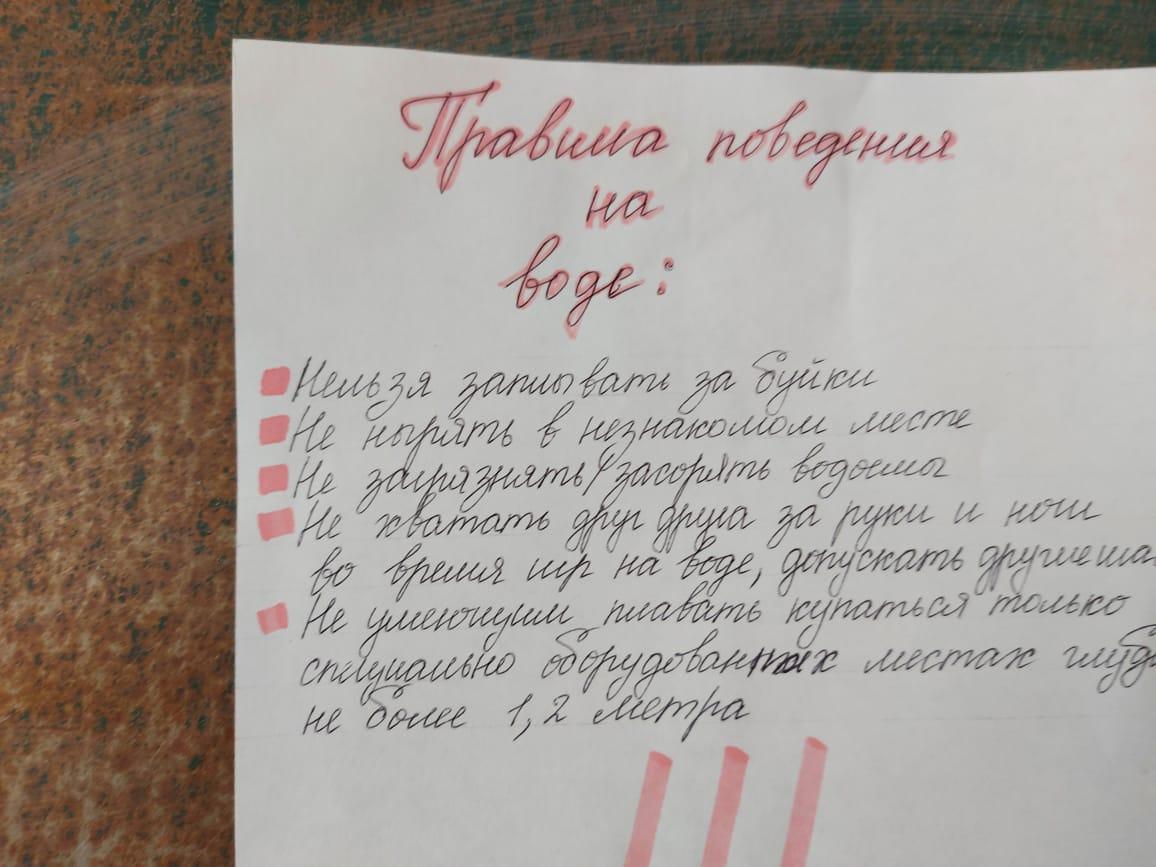 Правила поведения
на
воде:
Нельзя заплывать за буйки
Не нырять в незнакомом месте
Не загрязнять/засорять водоемы
Не хватать друг друга за руки и ноги
во время игр на воде, допускать другие
Не умеющим плавать купаться только
специально оборудованных местах
не более 1,2 метра